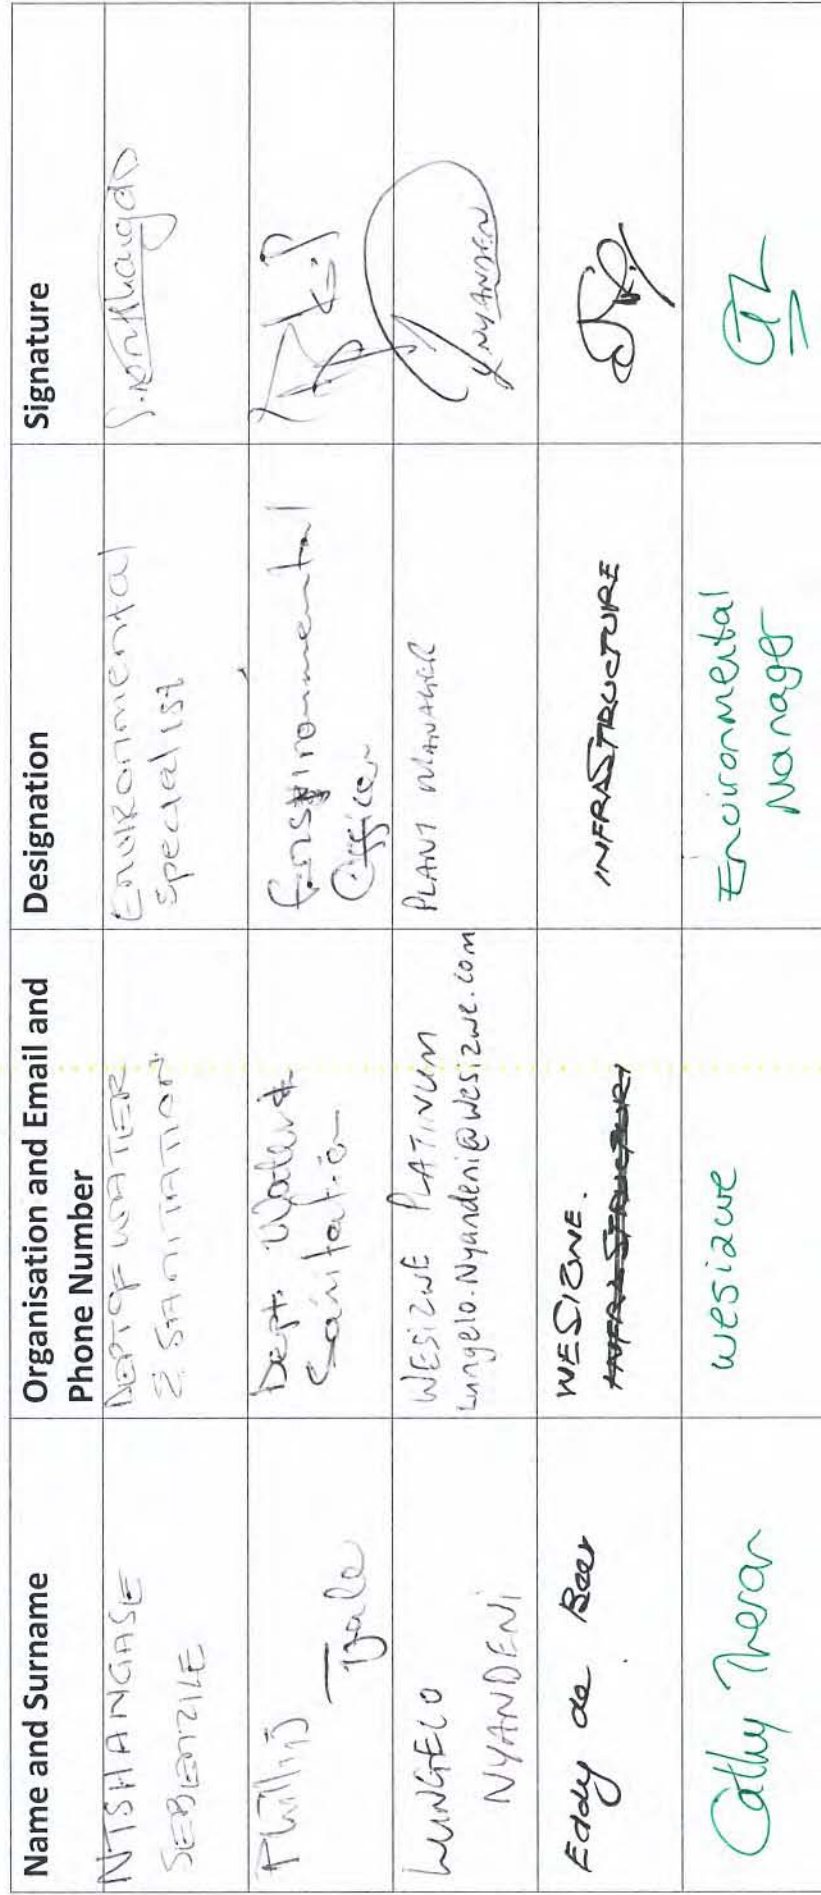 Name and Surname
Organisation and Email and
Phone Number
Designation
Signature
NTSHANGASE
SEBENZILE
DEPT OF WATER
& SANITATION
Environmental
Specialist
Phillip
Dept. Water &
Sanitation
Environmental
Officer
LUNGELO
NYANDENI
WESIZWE PLATINUM
Lungelo.Nyandeni@wesizwe.com
PLANT MANAGER
NYANDENI
Eddy de Beer
WESIZWE.
INFRASTRUCTURE
Cathy Theron
wesizwe
Environmental
Manager